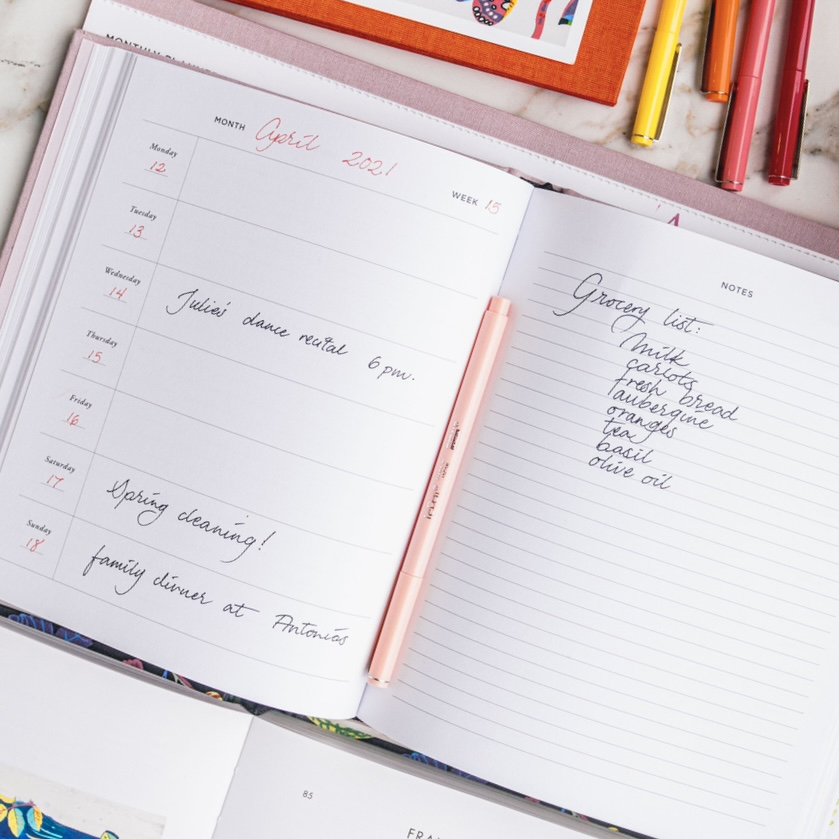 MONTH April 2021
WEEK 15
Monday
12
Tuesday
13
Wednesday
14
Julies' dance recital 6 pm.
Thursday
15
Friday
16
Saturday
17
Spring cleaning!
Sunday
18
family dinner at Antonios
NOTES
Grocery list:
Milk
carrots
fresh bread
aubergine
oranges
tea
basil
olive oil
85